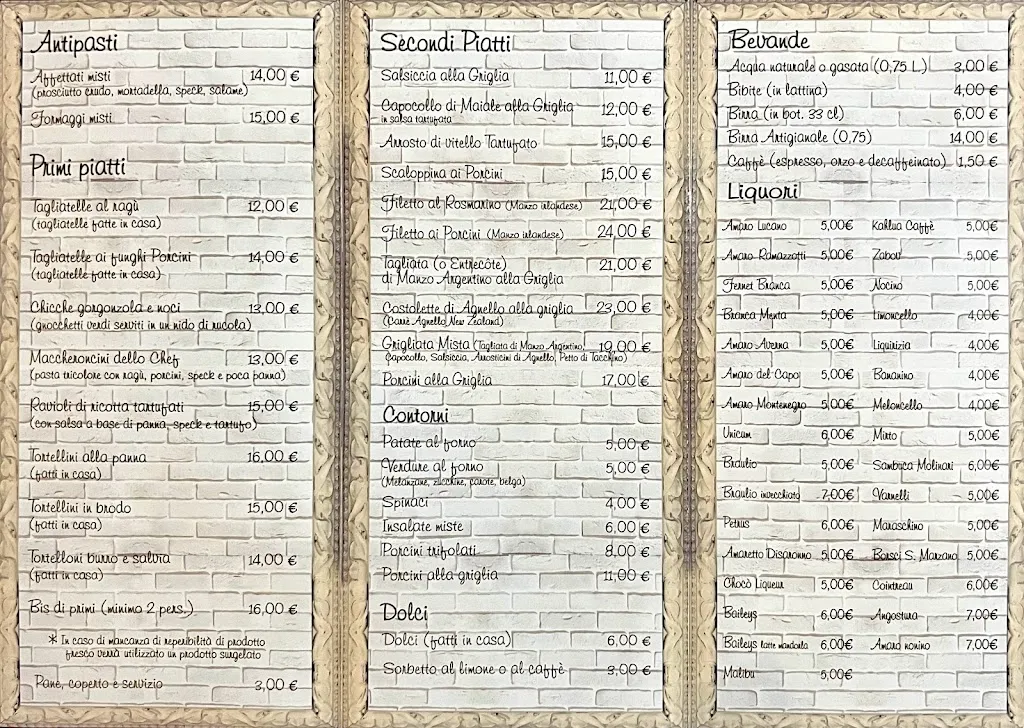 Antipasti
Affettati misti 14,00 €
(prosciutto crudo, mortadella, speck, salame)
Formaggi misti 15,00 €
Primi piatti
Tagliatelle al ragù 12,00 €
(tagliatelle fatte in casa)
Tagliatelle ai funghi Porcini 14,00 €
(tagliatelle fatte in casa)
Chicche gorgonzola e noci 13,00 €
(gnocchetti verdi serviti in un nido di rucola)
Maccheroncini dello Chef 13,00 €
(pasta tricolore con ragù, porcini, speck e poca panna)
Ravioli di ricotta tartufati 15,00 €
(con salsa a base di panna, speck e tartufo)
Tortellini alla panna 16,00 €
(fatti in casa)
Tortellini in brodo 15,00 €
(fatti in casa)
Tortelloni burro e salvia 14,00 €
(fatti in casa)
Bis di primi (minimo 2 pers.) 16,00 €
* In caso di mancanza di reperibilità di prodotto
fresco verrà utilizzato un prodotto surgelato
Pane, coperto e servizio 3,00 €
Secondi Piatti
Salsiccia alla Griglia 11,00 €
Capocollo di Maiale alla Griglia 12,00 €
in salsa tartufata
Arrosto di vitello Tartufato 15,00 €
Scaloppina ai Porcini 15,00 €
Filetto al Rosmarino (Manzo irlandese) 21,00 €
Filetto ai Porcini (Manzo irlandese) 24,00 €
Tagliata (o Entrecôte) 21,00 €
di Manzo Argentino alla Griglia
Costolette di Agnello alla griglia 23,00 €
(Carrè Agnello New Zealand)
Grigliata Mista (Tagliata di Manzo Argentino, 19,00 €
Capocollo, Salsiccia, Arrosticini di Agnello, Petto di Tacchino)
Porcini alla Griglia 17,00 €
Contorni
Patate al forno 5,00 €
Verdure al forno 5,00 €
(Melanzane, zucchine, carote, belga)
Spinaci 4,00 €
Insalate miste 6,00 €
Porcini trifolati 8,00 €
Porcini alla griglia 11,00 €
Dolci
Dolci (fatti in casa) 6,00 €
Sorbetto al limone o al caffè 3,00 €
Bevande
Acqua naturale o gasata (0,75 L.) 3,00 €
Bibite (in lattina) 4,00 €
Birra (in bot. 33 cl) 6,00 €
Birra Artigianale (0,75) 14,00 €
Caffè (espresso, orzo e decaffeinato) 1,50 €
Liquori
Amaro Lucano 5,00€ Kahlua Caffè 5,00€
Amaro Ramazzotti 5,00€ Zabov 5,00€
Fernet Branca 5,00€ Nocino 5,00€
Branca Menta 5,00€ Limoncello 4,00€
Amaro Averna 5,00€ Liquirizia 4,00€
Amaro del Capo 5,00€ Bananino 4,00€
Amaro Montenegro 5,00€ Meloncello 4,00€
Unicum 6,00€ Mirto 5,00€
Braulio 5,00€ Sambuca Molinari 6,00€
Braulio invecchiato 7,00€ Varnelli 5,00€
Petrus 6,00€ Maraschino 5,00€
Amaretto Disaronno 5,00€ Borsci S. Marzano 5,00€
Chocò Liqueur 5,00€ Cointreau 6,00€
Baileys 6,00€ Angostura 7,00€
Baileys latte mandorla 6,00€ Amaro nonino 7,00€
Malibu 5,00€